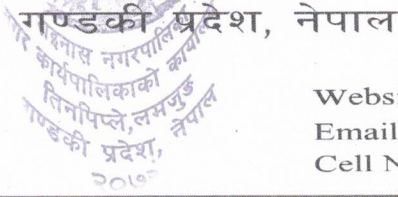 गण्डकी प्रदेश, नेपाल
नगरपालिका
नगर कार्यपालिकाको कार्यालय
तिनपिप्ले, लमजुङ
गण्डकी प्रदेश, नेपाल
२०७३
Websi
Email
Cell N